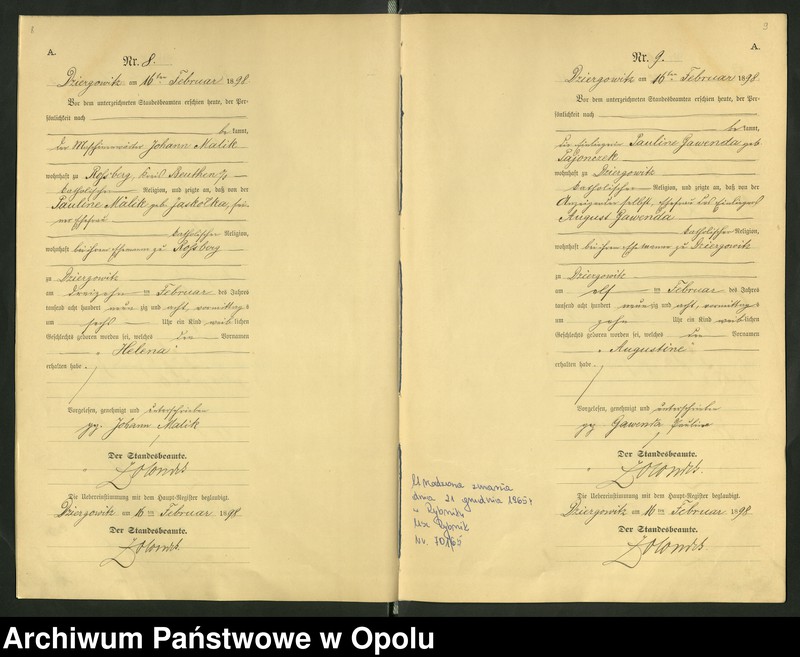 A.
Nr. 8.
Dziergowitz am 16ten Februar 1898
Vor dem unterzeichneten Standesbeamten erschien heute, der Per-
sönlichkeit nach
bekannt,
der Maschinenwärter Johann Malik
wohnhaft zu Roßberg, Kreis Beuthen
katholischer Religion, und zeigte an, daß von der
Pauline Malik geb. Jaskolka, sei-
ner Ehefrau
katholischer Religion,
wohnhaft bei ihrem Ehemann zu Roßberg
zu Dziergowitz
am dreizehn ten Februar des Jahres
tausend acht hundert neunzig und acht, vormittags
um sechs Uhr ein Kind weiblichen
Geschlechts geboren worden sei, welches die Vornamen
Helena
erhalten habe.
Vorgelesen, genehmigt und unterschrieben
gez. Johann Malik
Der Standesbeamte.
Zolondek
Die Uebereinstimmung mit dem Haupt-Register beglaubigt.
Dziergowitz am 16ten Februar 1898
Der Standesbeamte.
Zolondek
9
A.
Nr. 9.
Dziergowitz am 16ten Februar 1898
Vor dem unterzeichneten Standesbeamten erschien heute, der Per-
sönlichkeit nach
bekannt,
die Einliegerin Pauline Gawenda geb.
Pajonczek
wohnhaft zu Dziergowitz
katholischer Religion, und zeigte an, daß von der
Anzeigenden selbst, Ehefrau des Einliegers
August Gawenda
katholischer Religion,
wohnhaft bei ihrem Ehemanne zu Dziergowitz
zu Dziergowitz
am elf ten Februar des Jahres
tausend acht hundert neunzig und acht, vormittags
um zehn Uhr ein Kind weiblichen
Geschlechts geboren worden sei, welches die Vornamen
Augustine
erhalten habe
Vorgelesen, genehmigt und unterschrieben
gez. Gawenda Pauline
Der Standesbeamte.
Zolondek.
Die Uebereinstimmung mit dem Haupt-Register beglaubigt.
Dziergowitz am 16ten Februar 1898
Der Standesbeamte.
Zolondek
zmarła
dnia 21 grudnia 1965 r
w Rybniku
Usc Rybnik
Nr.
Archiwum Państwowe w Opolu